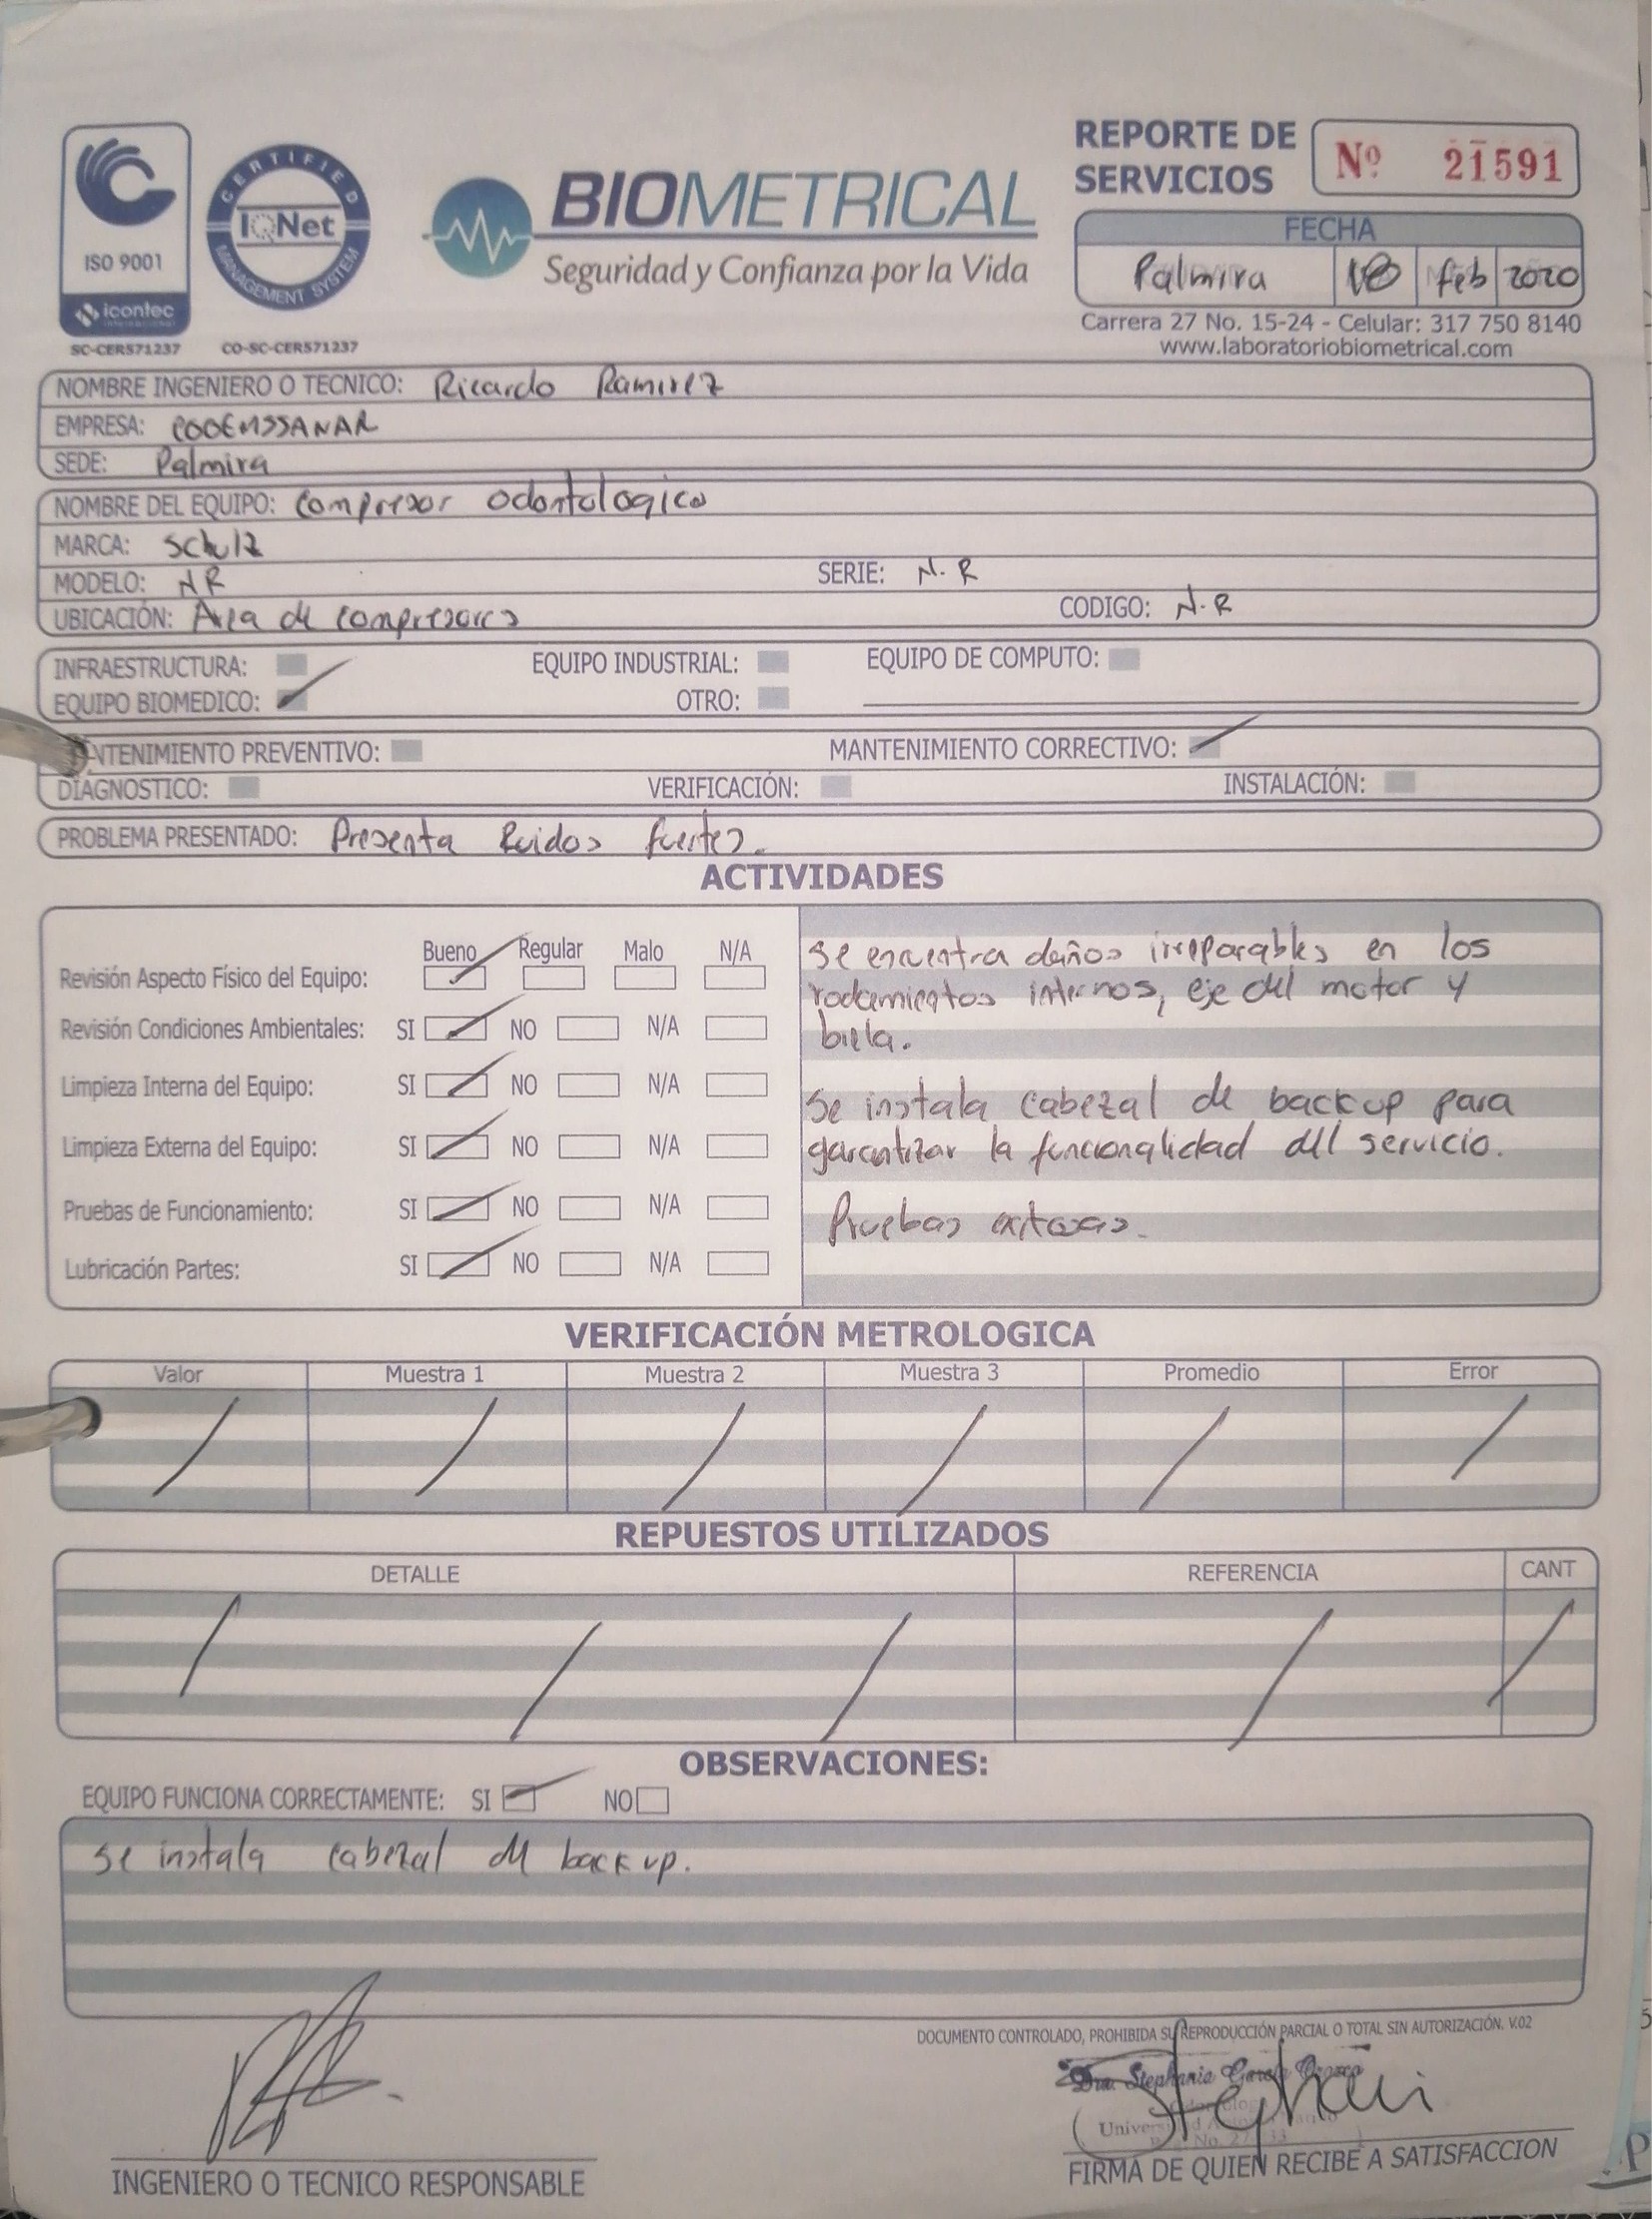 REPORTE DE
SERVICIOS
Nº 21591
CERTIFIED
IQNet
MANAGEMENT SYSTEM
ISO 9001
icontec
international
SC-CER571237
CO-SC-CER571237
BIOMETRICAL
Seguridad y Confianza por la Vida
FECHA
Palmira Feb 2020
Carrera 27 No. 15-24 - Celular: 317 750 8140
www.laboratoriobiometrical.com
NOMBRE INGENIERO O TECNICO: Ricardo Ramirez
EMPRESA: COOEMSSANAR
SEDE: Palmira
NOMBRE DEL EQUIPO: Compresor odontologico
MARCA: Schulz
MODELO: NR SERIE: N.R
UBICACIÓN: Area de compresores CODIGO: N.R
INFRAESTRUCTURA: EQUIPO INDUSTRIAL: EQUIPO DE COMPUTO:
EQUIPO BIOMEDICO: OTRO:
NTENIMIENTO PREVENTIVO: MANTENIMIENTO CORRECTIVO:
DIAGNOSTICO: VERIFICACIÓN: INSTALACIÓN:
PROBLEMA PRESENTADO: Presenta Ruidos fuertes.
ACTIVIDADES
Bueno Regular Malo N/A
Revisión Aspecto Físico del Equipo:
Revisión Condiciones Ambientales: SI NO N/A
Limpieza Interna del Equipo: SI NO N/A
Limpieza Externa del Equipo: SI NO N/A
Pruebas de Funcionamiento: SI NO N/A
Lubricación Partes: SI NO N/A
Se encuentra daños irreparables en los
rodamientos internos, eje del motor y
biela.
Se instala cabezal de backup para
garantizar la funcionalidad del servicio.
Pruebas exitosas.
VERIFICACIÓN METROLOGICA
Valor Muestra 1 Muestra 2 Muestra 3 Promedio Error
REPUESTOS UTILIZADOS
DETALLE REFERENCIA CANT
OBSERVACIONES:
EQUIPO FUNCIONA CORRECTAMENTE: SI NO
Se instala cabezal de backup.
DOCUMENTO CONTROLADO, PROHIBIDA SU REPRODUCCIÓN PARCIAL O TOTAL SIN AUTORIZACIÓN. V.02
Dra. Stephania García Orozco
Stephani
INGENIERO O TECNICO RESPONSABLE
FIRMA DE QUIEN RECIBE A SATISFACCION